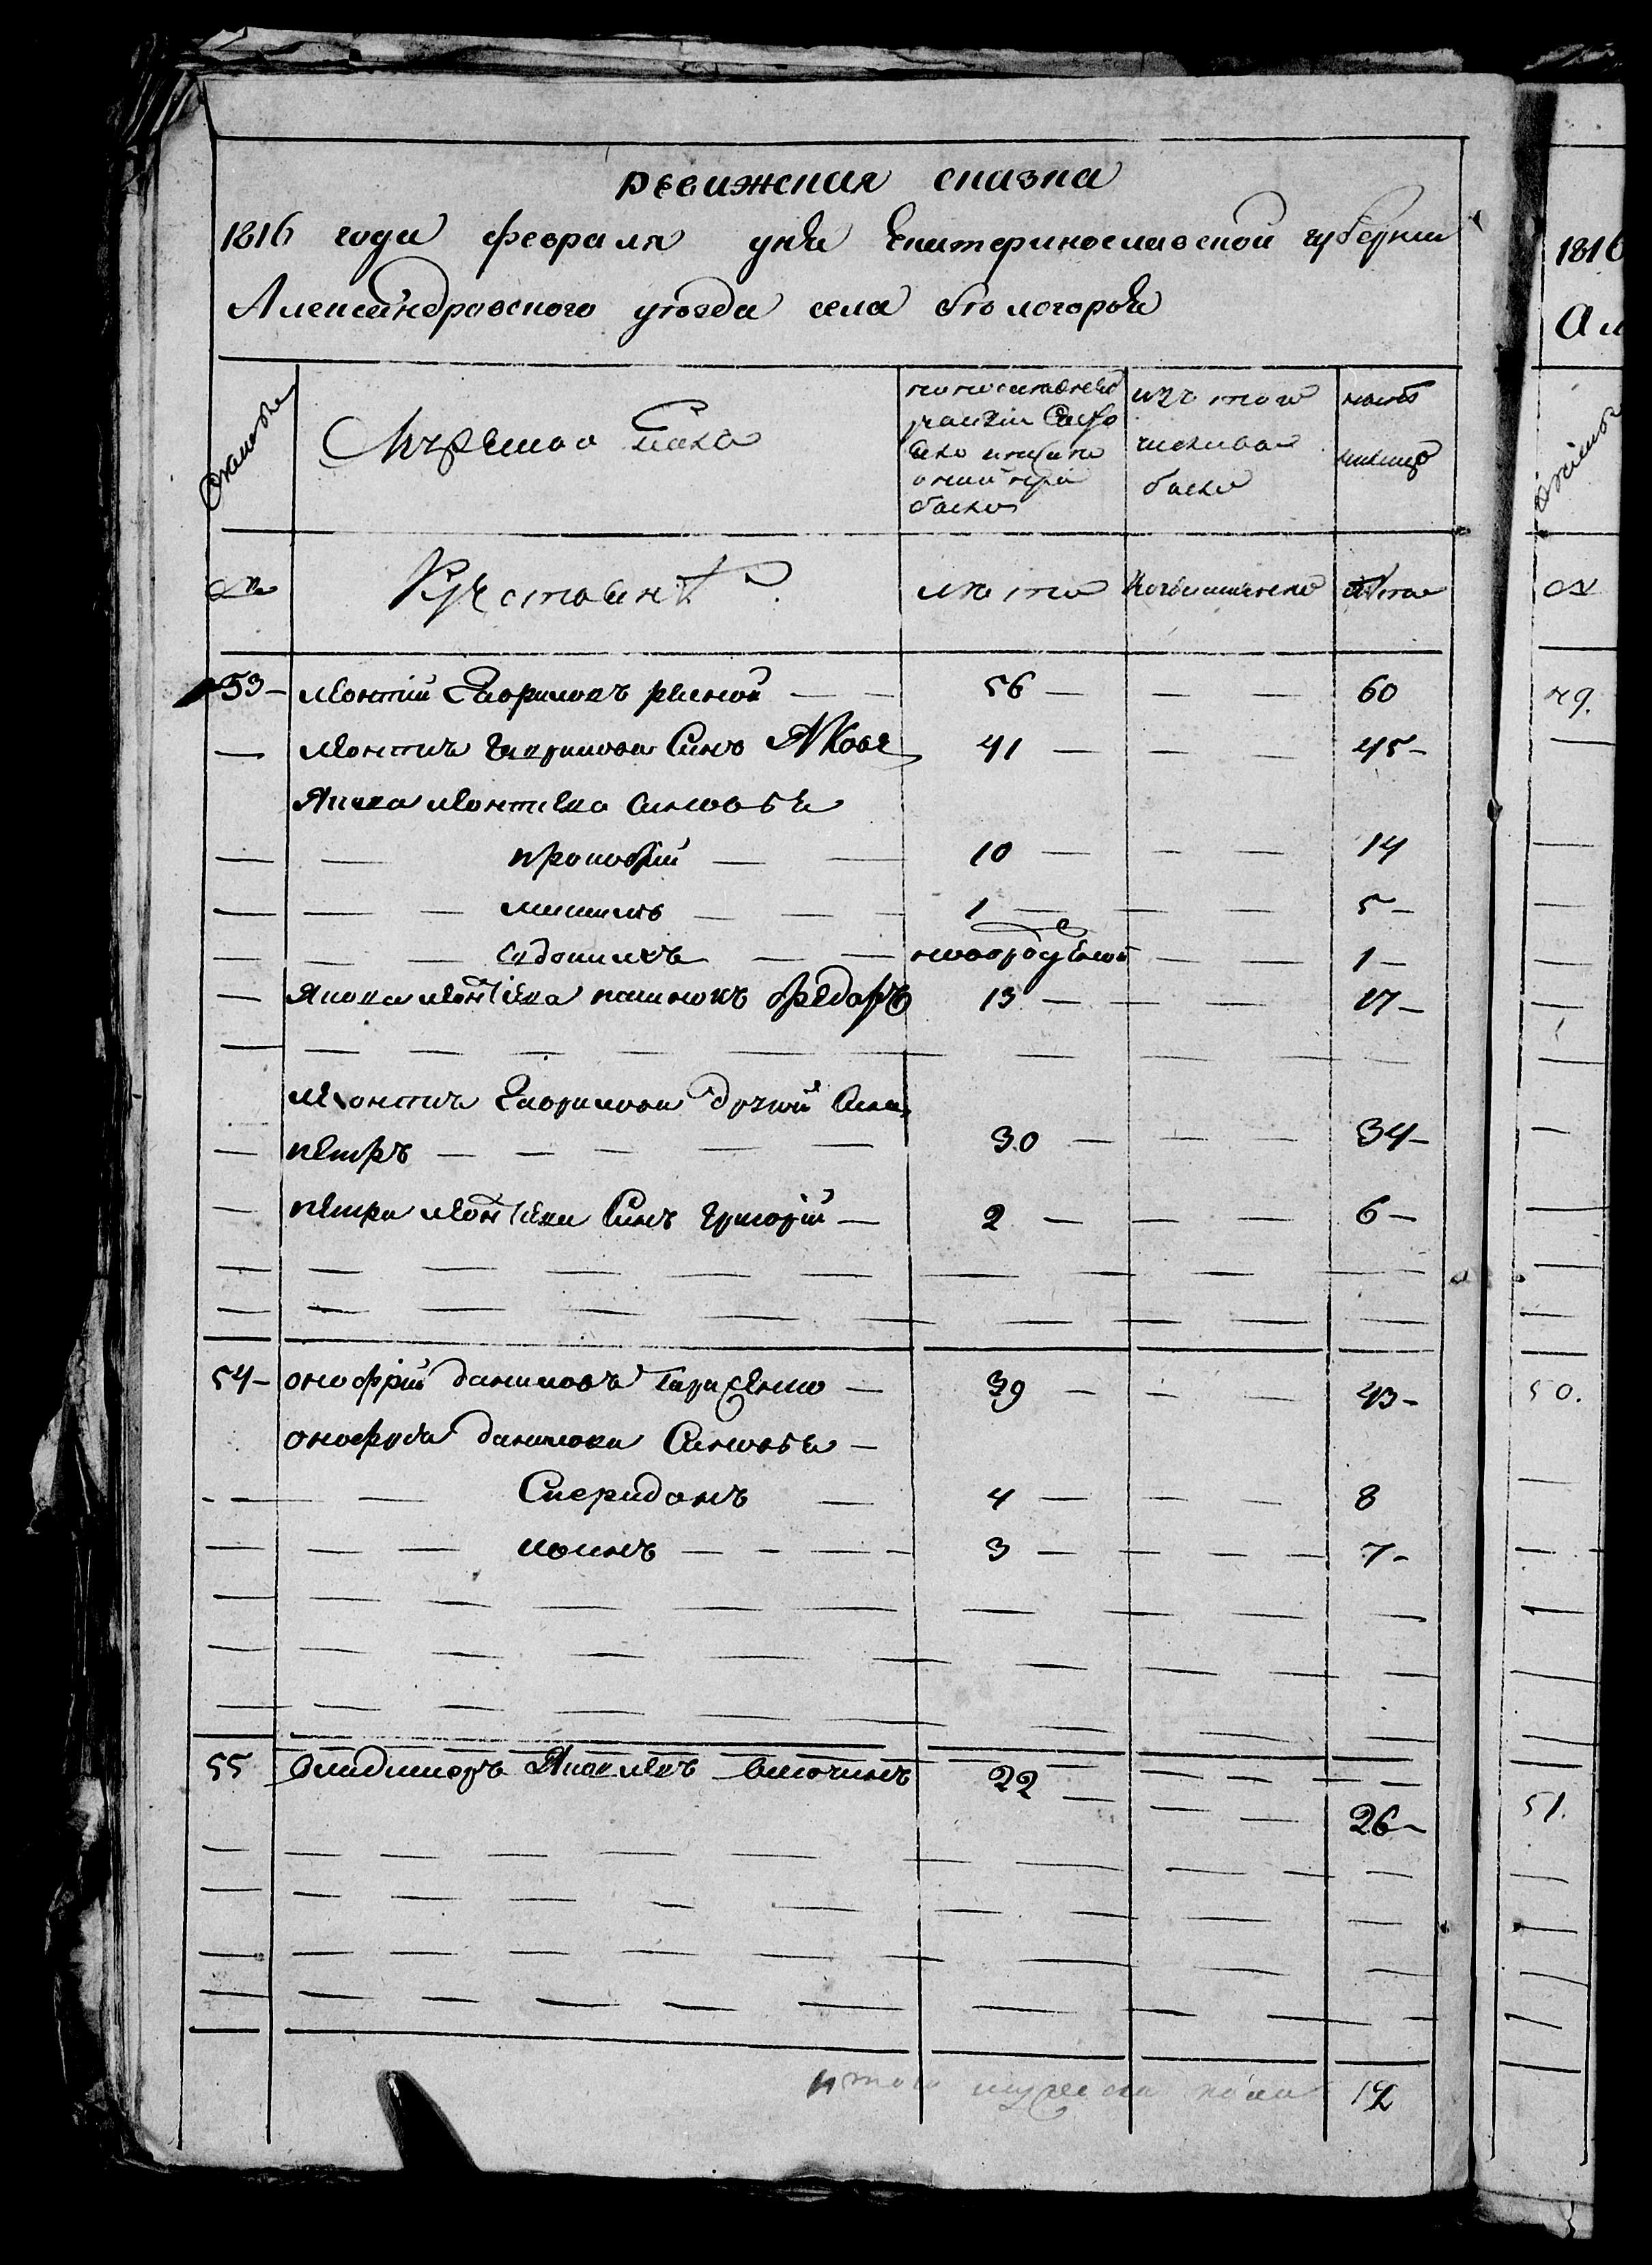 ревижская сказка
1816 года февраля дня Екатеринославской губернии
Александровского уѣзда села бѣлогорья
мужеска пола
изъ того числа выбыло
ныне на лицо
№
Крестьянѣ
лѣта
лѣта
53 леонтий Гаврилов 56 60
леонтия Гаврилова Синъ Яковъ 41 45
Якова леонтиева Синовья
прокофий 10 14
михаилъ 1 5
Евдокимъ новорожденой 1
Якова леонтиева федоръ 13 17
леонтия Гаврилова другой Синъ
петръ 30 34
петра леонтиева Синъ григорий 2 6
54 онофрий даниловъ тарасенко 39 43
онофрия данилова Синовья
Спиридонъ 4 8
иоанъ 3 7
55 владимеръ Яковлевъ 22
26
итого мужеска пола 12
1816
49.
50.
51.